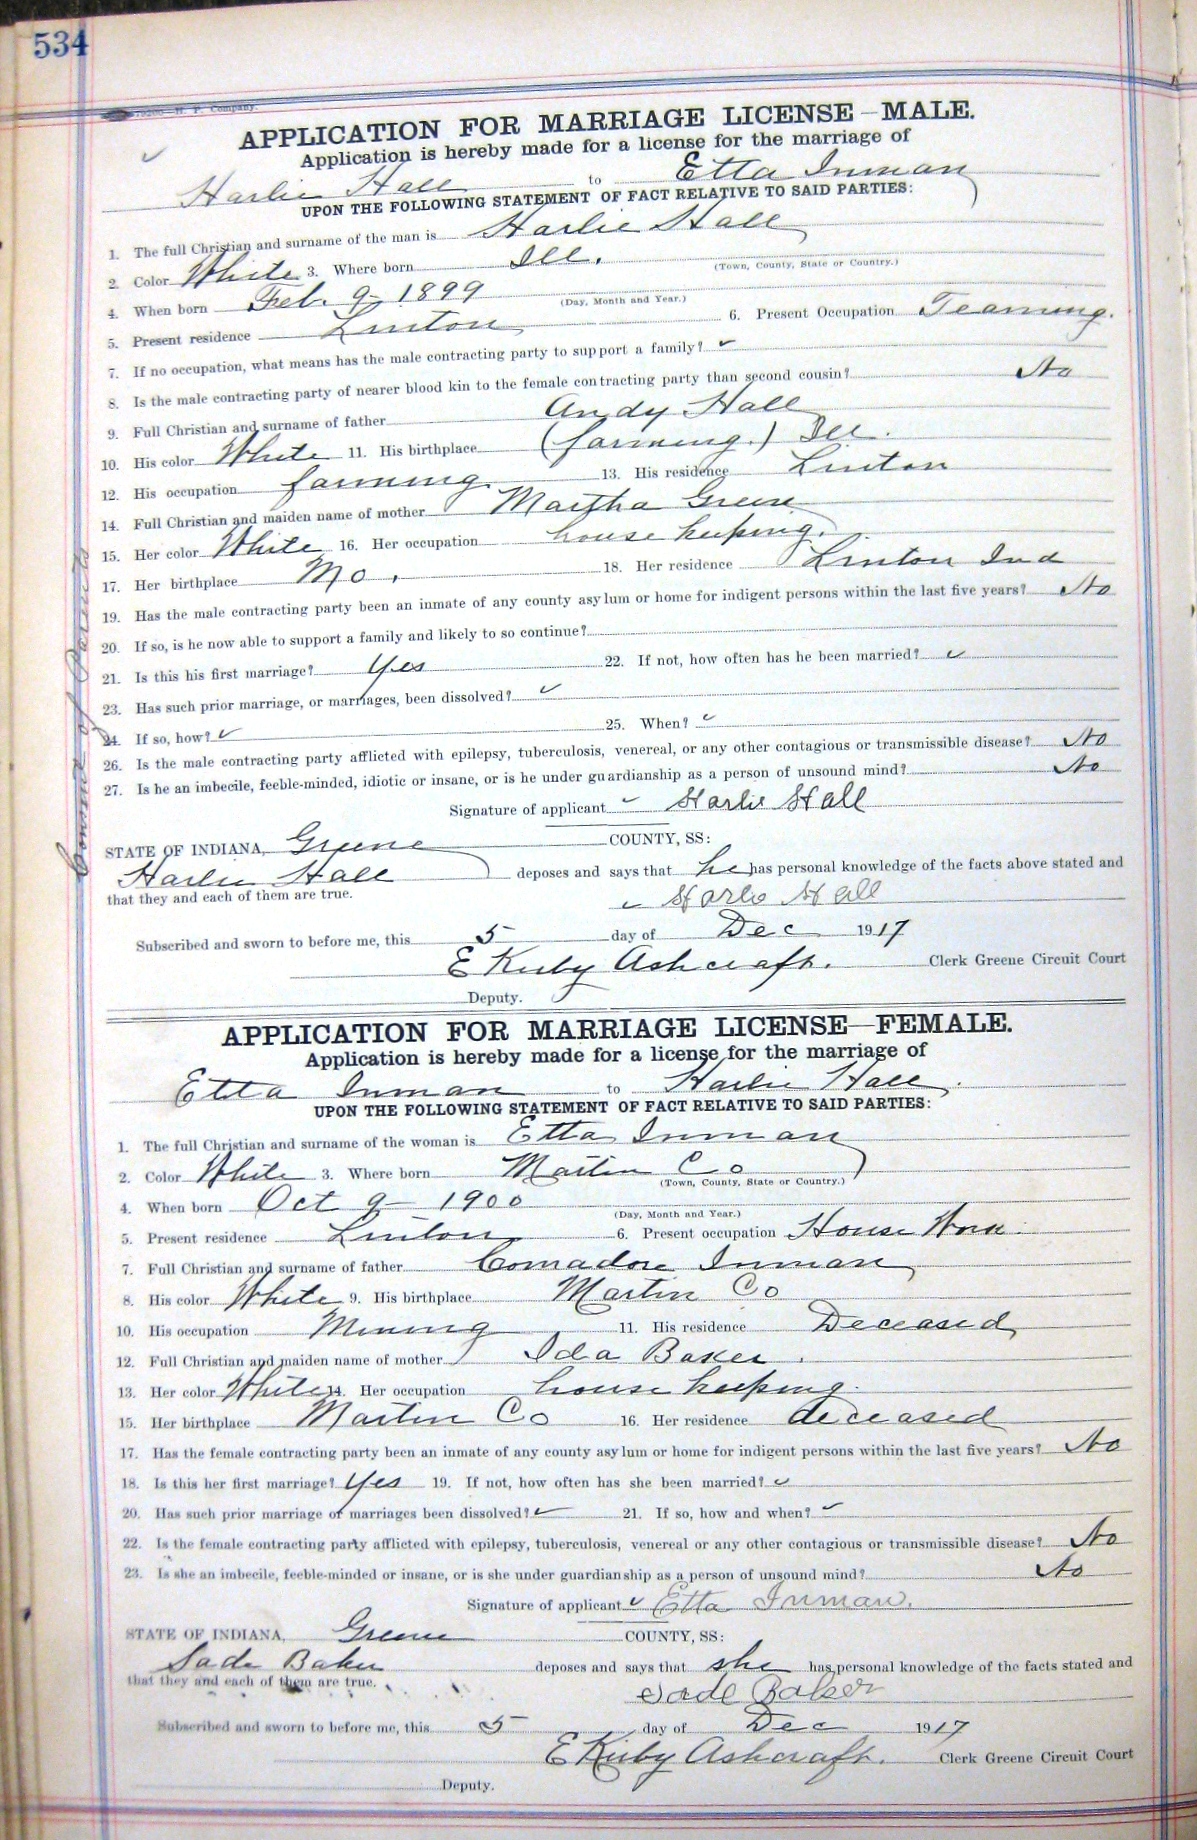 534
APPLICATION FOR MARRIAGE LICENSE—MALE.
Application is hereby made for a license for the marriage of
Harlie Hall to Etta Inman
UPON THE FOLLOWING STATEMENT OF FACT RELATIVE TO SAID PARTIES:
1. The full Christian and surname of the man is Harlie Hall
2. Color White 3. Where born Ill.
(Town, County, State or Country.)
4. When born Feb. 9 1899
(Day, Month and Year.)
5. Present residence Linton 6. Present Occupation Teaming.
7. If no occupation, what means has the male contracting party to support a family? ✓
8. Is the male contracting party of nearer blood kin to the female contracting party than second cousin? No
9. Full Christian and surname of father Andy Hall
10. His color White 11. His birthplace (farming.) Ill.
12. His occupation farming. 13. His residence Linton
14. Full Christian and maiden name of mother Martha Greene
15. Her color White 16. Her occupation house keeping.
17. Her birthplace Mo. 18. Her residence Linton Ind
19. Has the male contracting party been an inmate of any county asylum or home for indigent persons within the last five years? No
20. If so, is he now able to support a family and likely to so continue?
21. Is this his first marriage? Yes 22. If not, how often has he been married? ✓
23. Has such prior marriage, or marriages, been dissolved? ✓
24. If so, how? ✓ 25. When? ✓
26. Is the male contracting party afflicted with epilepsy, tuberculosis, venereal, or any other contagious or transmissible disease? No
27. Is he an imbecile, feeble-minded, idiotic or insane, or is he under guardianship as a person of unsound mind? No
Signature of applicant ✓ Harlie Hall
Consent of Parents
STATE OF INDIANA, Greene COUNTY, SS:
Harlie Hall deposes and says that he has personal knowledge of the facts above stated and
that they and each of them are true.
✓ Harlie Hall
Subscribed and sworn to before me, this 5 day of Dec 1917
E Kirby Ashcraft. Clerk Greene Circuit Court
Deputy.
APPLICATION FOR MARRIAGE LICENSE—FEMALE.
Application is hereby made for a license for the marriage of
Etta Inman to Harlie Hall.
UPON THE FOLLOWING STATEMENT OF FACT RELATIVE TO SAID PARTIES:
1. The full Christian and surname of the woman is Etta Inman
2. Color White 3. Where born Martin Co
(Town, County, State or Country.)
4. When born Oct 9 1900
(Day, Month and Year.)
5. Present residence Linton 6. Present occupation House Work.
7. Full Christian and surname of father Comadore Inman
8. His color White 9. His birthplace Martin Co
10. His occupation Mining 11. His residence Deceased
12. Full Christian and maiden name of mother Ida Baker.
13. Her color White 14. Her occupation house keeping.
15. Her birthplace Martin Co 16. Her residence deceased
17. Has the female contracting party been an inmate of any county asylum or home for indigent persons within the last five years? No
18. Is this her first marriage? Yes 19. If not, how often has she been married? ✓
20. Has such prior marriage or marriages been dissolved? ✓ 21. If so, how and when? ✓
22. Is the female contracting party afflicted with epilepsy, tuberculosis, venereal or any other contagious or transmissible disease? No
23. Is she an imbecile, feeble-minded or insane, or is she under guardianship as a person of unsound mind? No
Signature of applicant ✓ Etta Inman.
STATE OF INDIANA, Greene COUNTY, SS:
Sade Baker deposes and says that she has personal knowledge of the facts stated and
that they and each of them are true.
Sade Baker
Subscribed and sworn to before me, this 5 day of Dec 1917
E Kirby Ashcraft. Clerk Greene Circuit Court
Deputy.